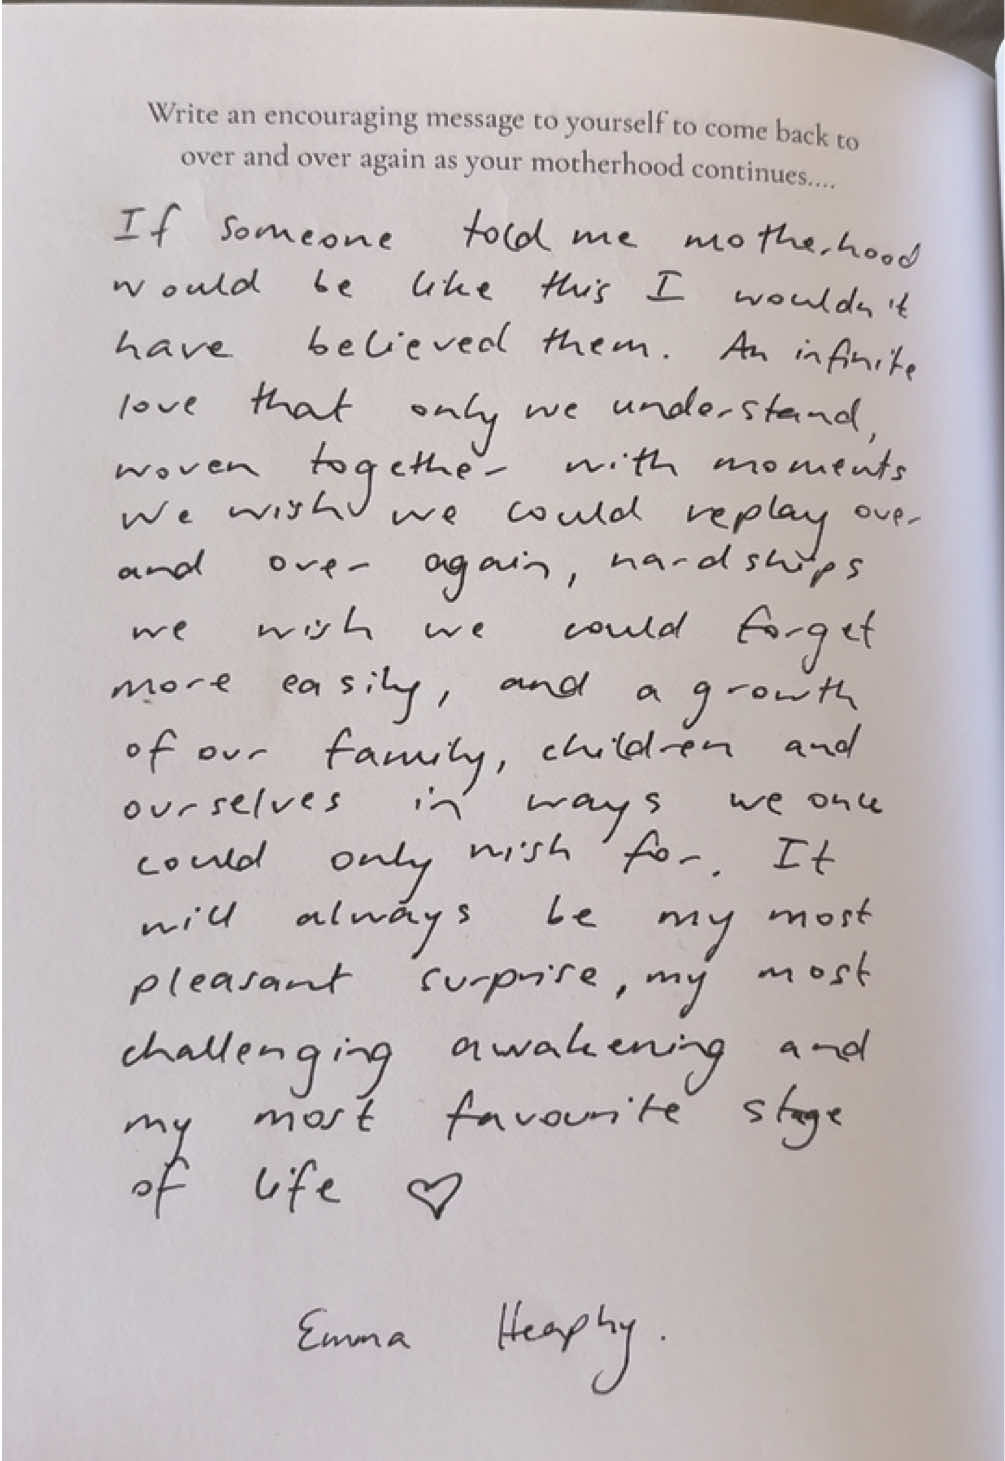 Write an encouraging message to yourself to come back to
over and over again as your motherhood continues....
If someone told me motherhood
would be like this I wouldn't
have believed them. An infinite
love that only we understand,
woven together with moments
we wish we could replay over
and over again, hardships
we wish we could forget
more easily, and a growth
of our family, children and
ourselves in ways we once
could only wish for. It
will always be my most
pleasant surprise, my most
challenging awakening and
my most favourite stage
of life ♡
Emma Heaphy.